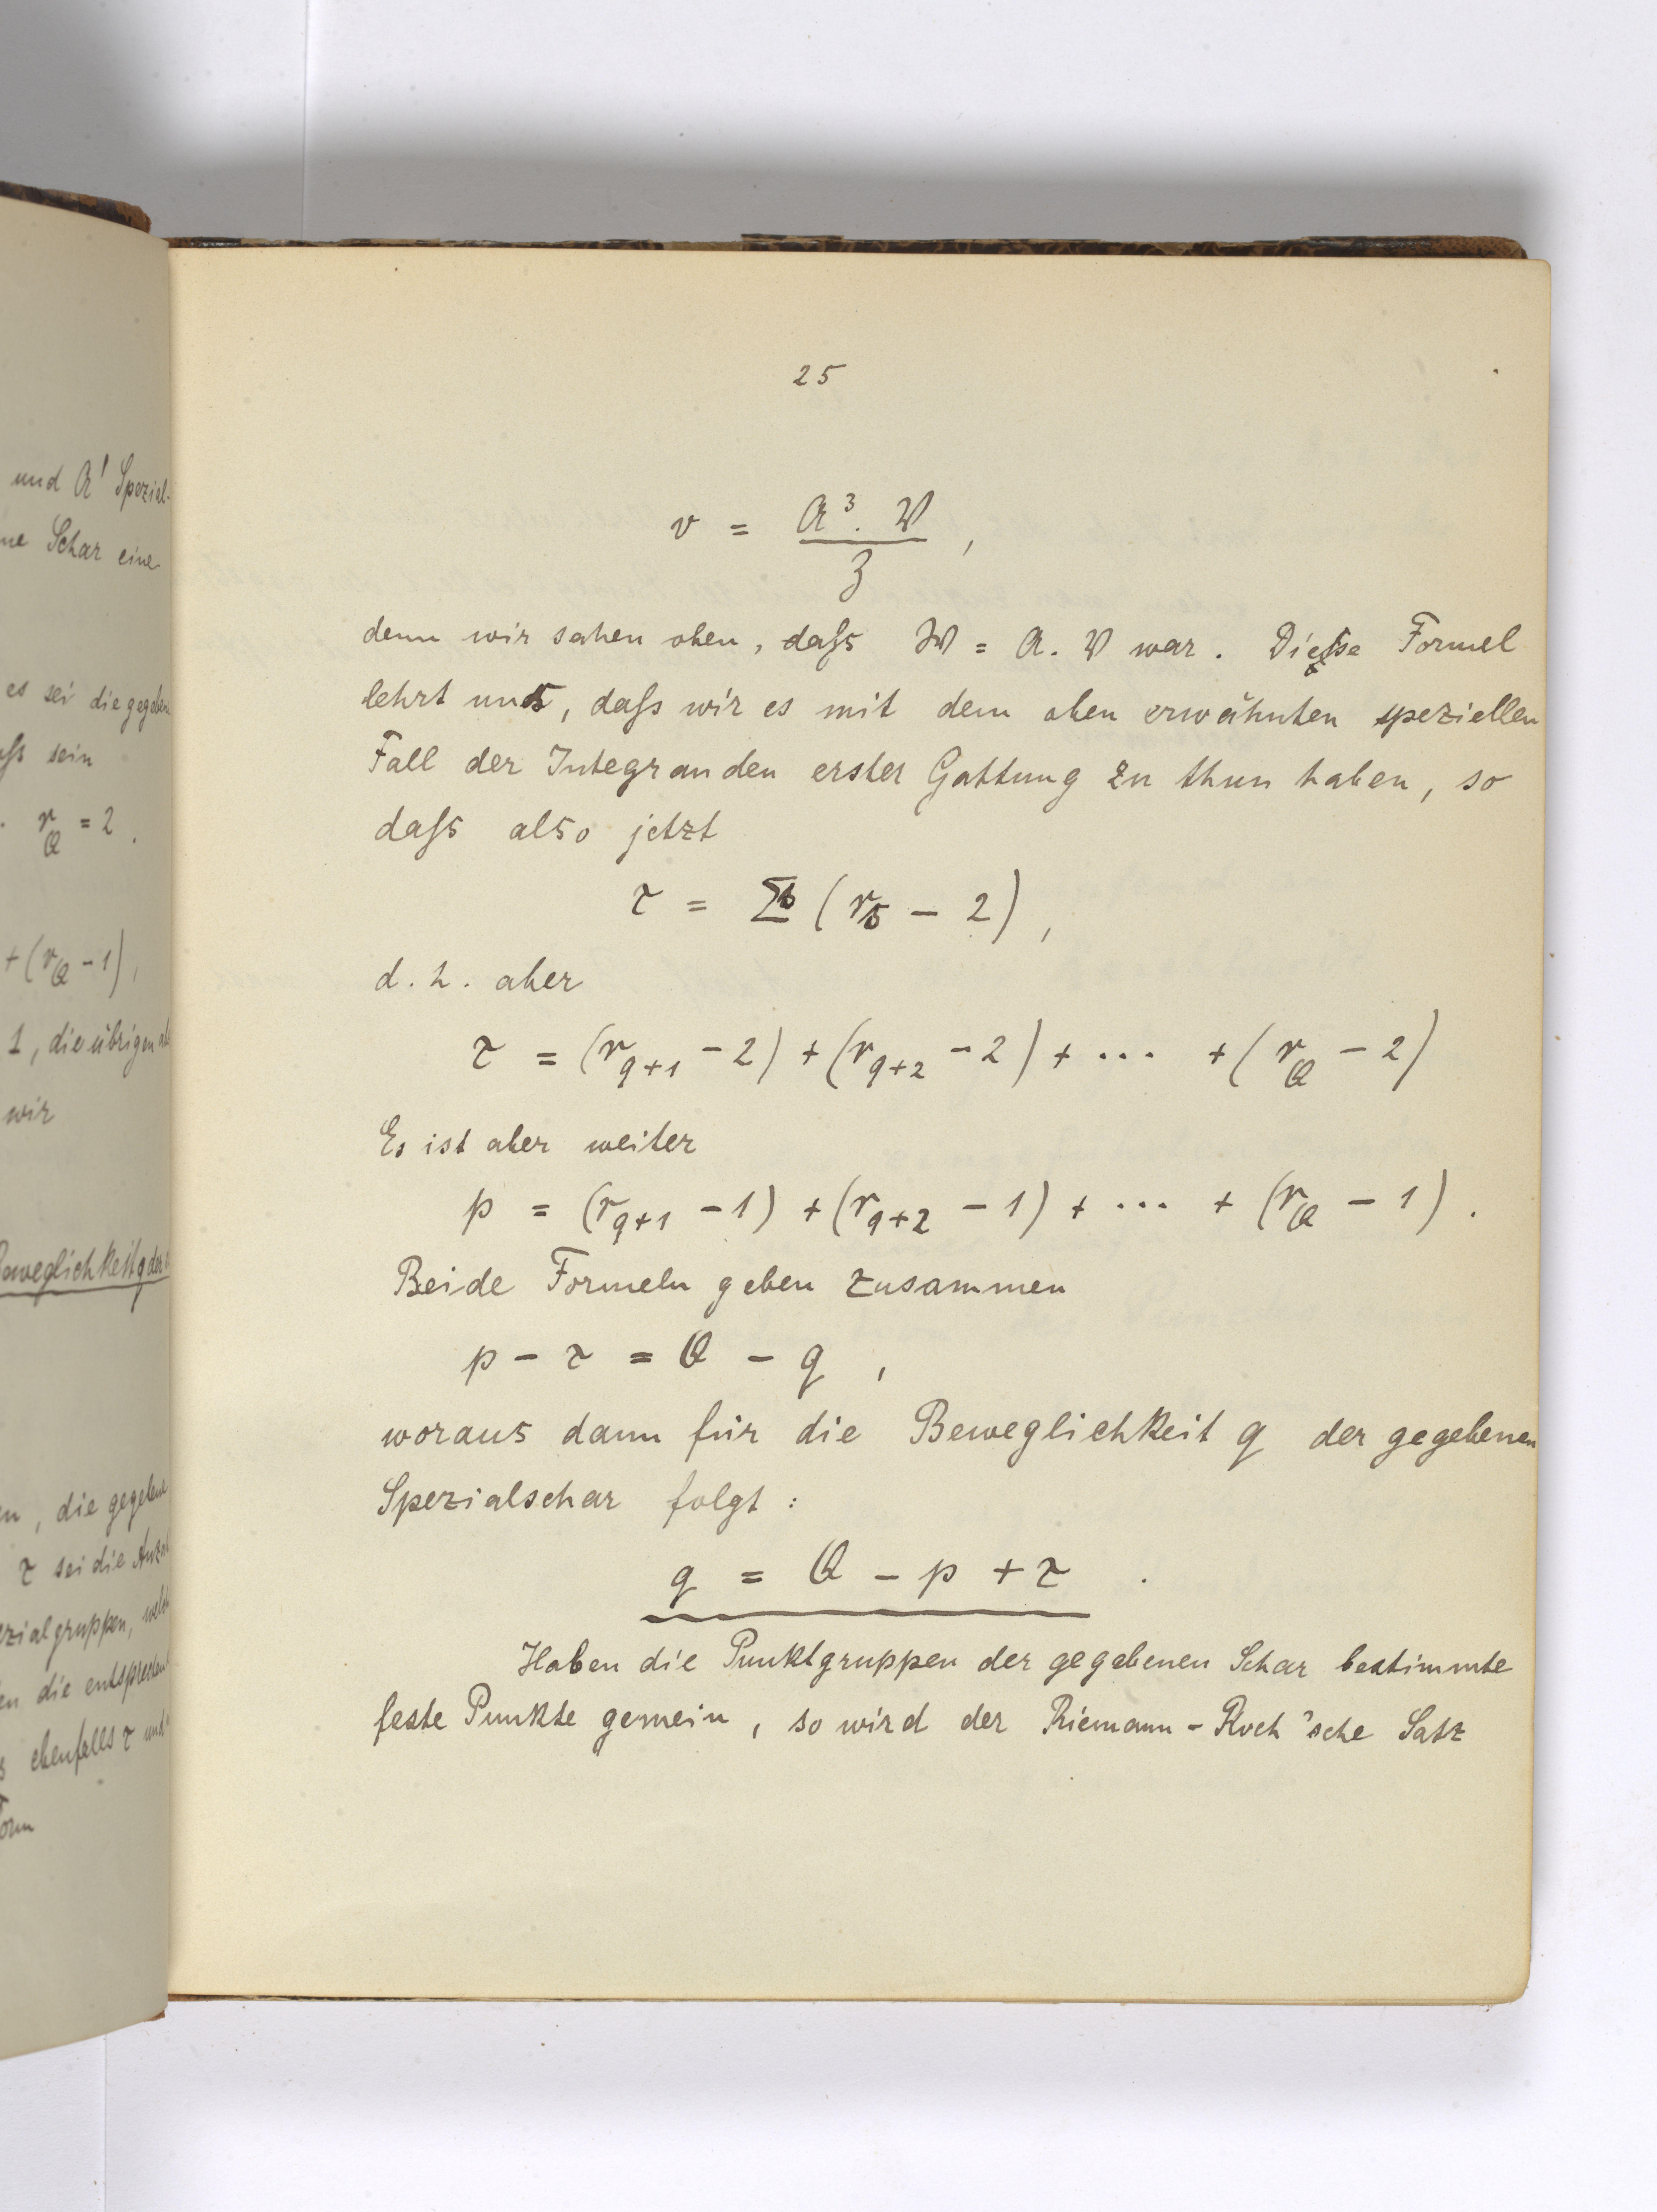 und A' Spezial-
ne Schar eine
es sei die gegeben
ß sein
r_Q = 2.
+ (r_Q - 1),
1, die übrigen
wir
Beweglichkeit q der
en, die gegebene
τ sei die Anzahl
zialgruppen, welch
en die entsprechen
ebenfalls τ und
Form
25
v = A³ . W / z ,
denn wir sahen oben, daß W = A . V war. Diese Formel
lehrt uns, daß wir es mit dem oben erwähnten speziellen
Fall der Integranden erster Gattung zu thun haben, so
daß also jetzt
τ = Σ (r_s - 2) ,
d. h. aber
τ = (r_{q+1} - 2) + (r_{q+2} - 2) + ... + (r_Q - 2)
Es ist aber weiter
p = (r_{q+1} - 1) + (r_{q+2} - 1) + ... + (r_Q - 1) .
Beide Formeln geben zusammen
p - τ = Q - q ,
woraus dann für die Beweglichkeit q der gegebenen
Spezialschar folgt :
q = Q - p + τ .
Haben die Punktgruppen der gegebenen Schar bestimmte
feste Punkte gemein, so wird der Riemann-Roch'sche Satz